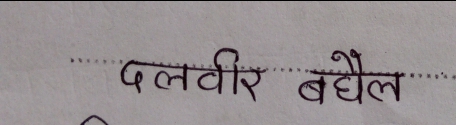 दलवीर बघैल